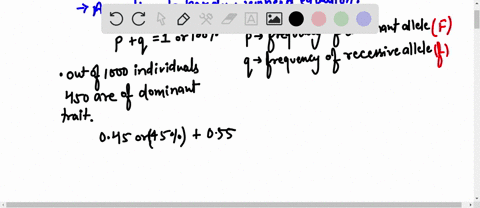 p + q = 1 or 100%
p → frequency of dominant allele (F)
q → frequency of recessive allele (f)
• out of 1000 individuals
450 are of dominant
trait.
0.45 or (45%) + 0.55